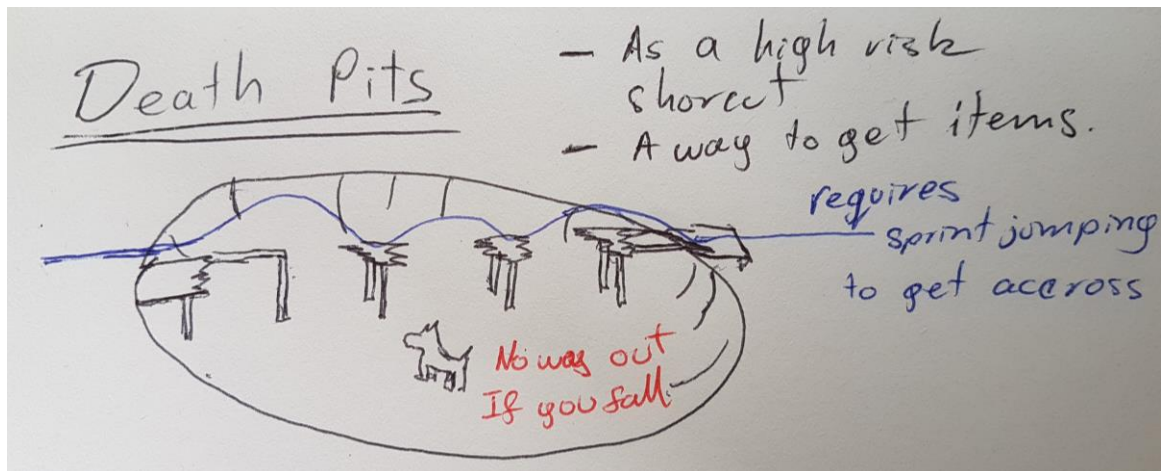 Death Pits
- As a high risk
shorcut
- A way to get items.
requires
sprint jumping
to get accross
No way out
If you fall.